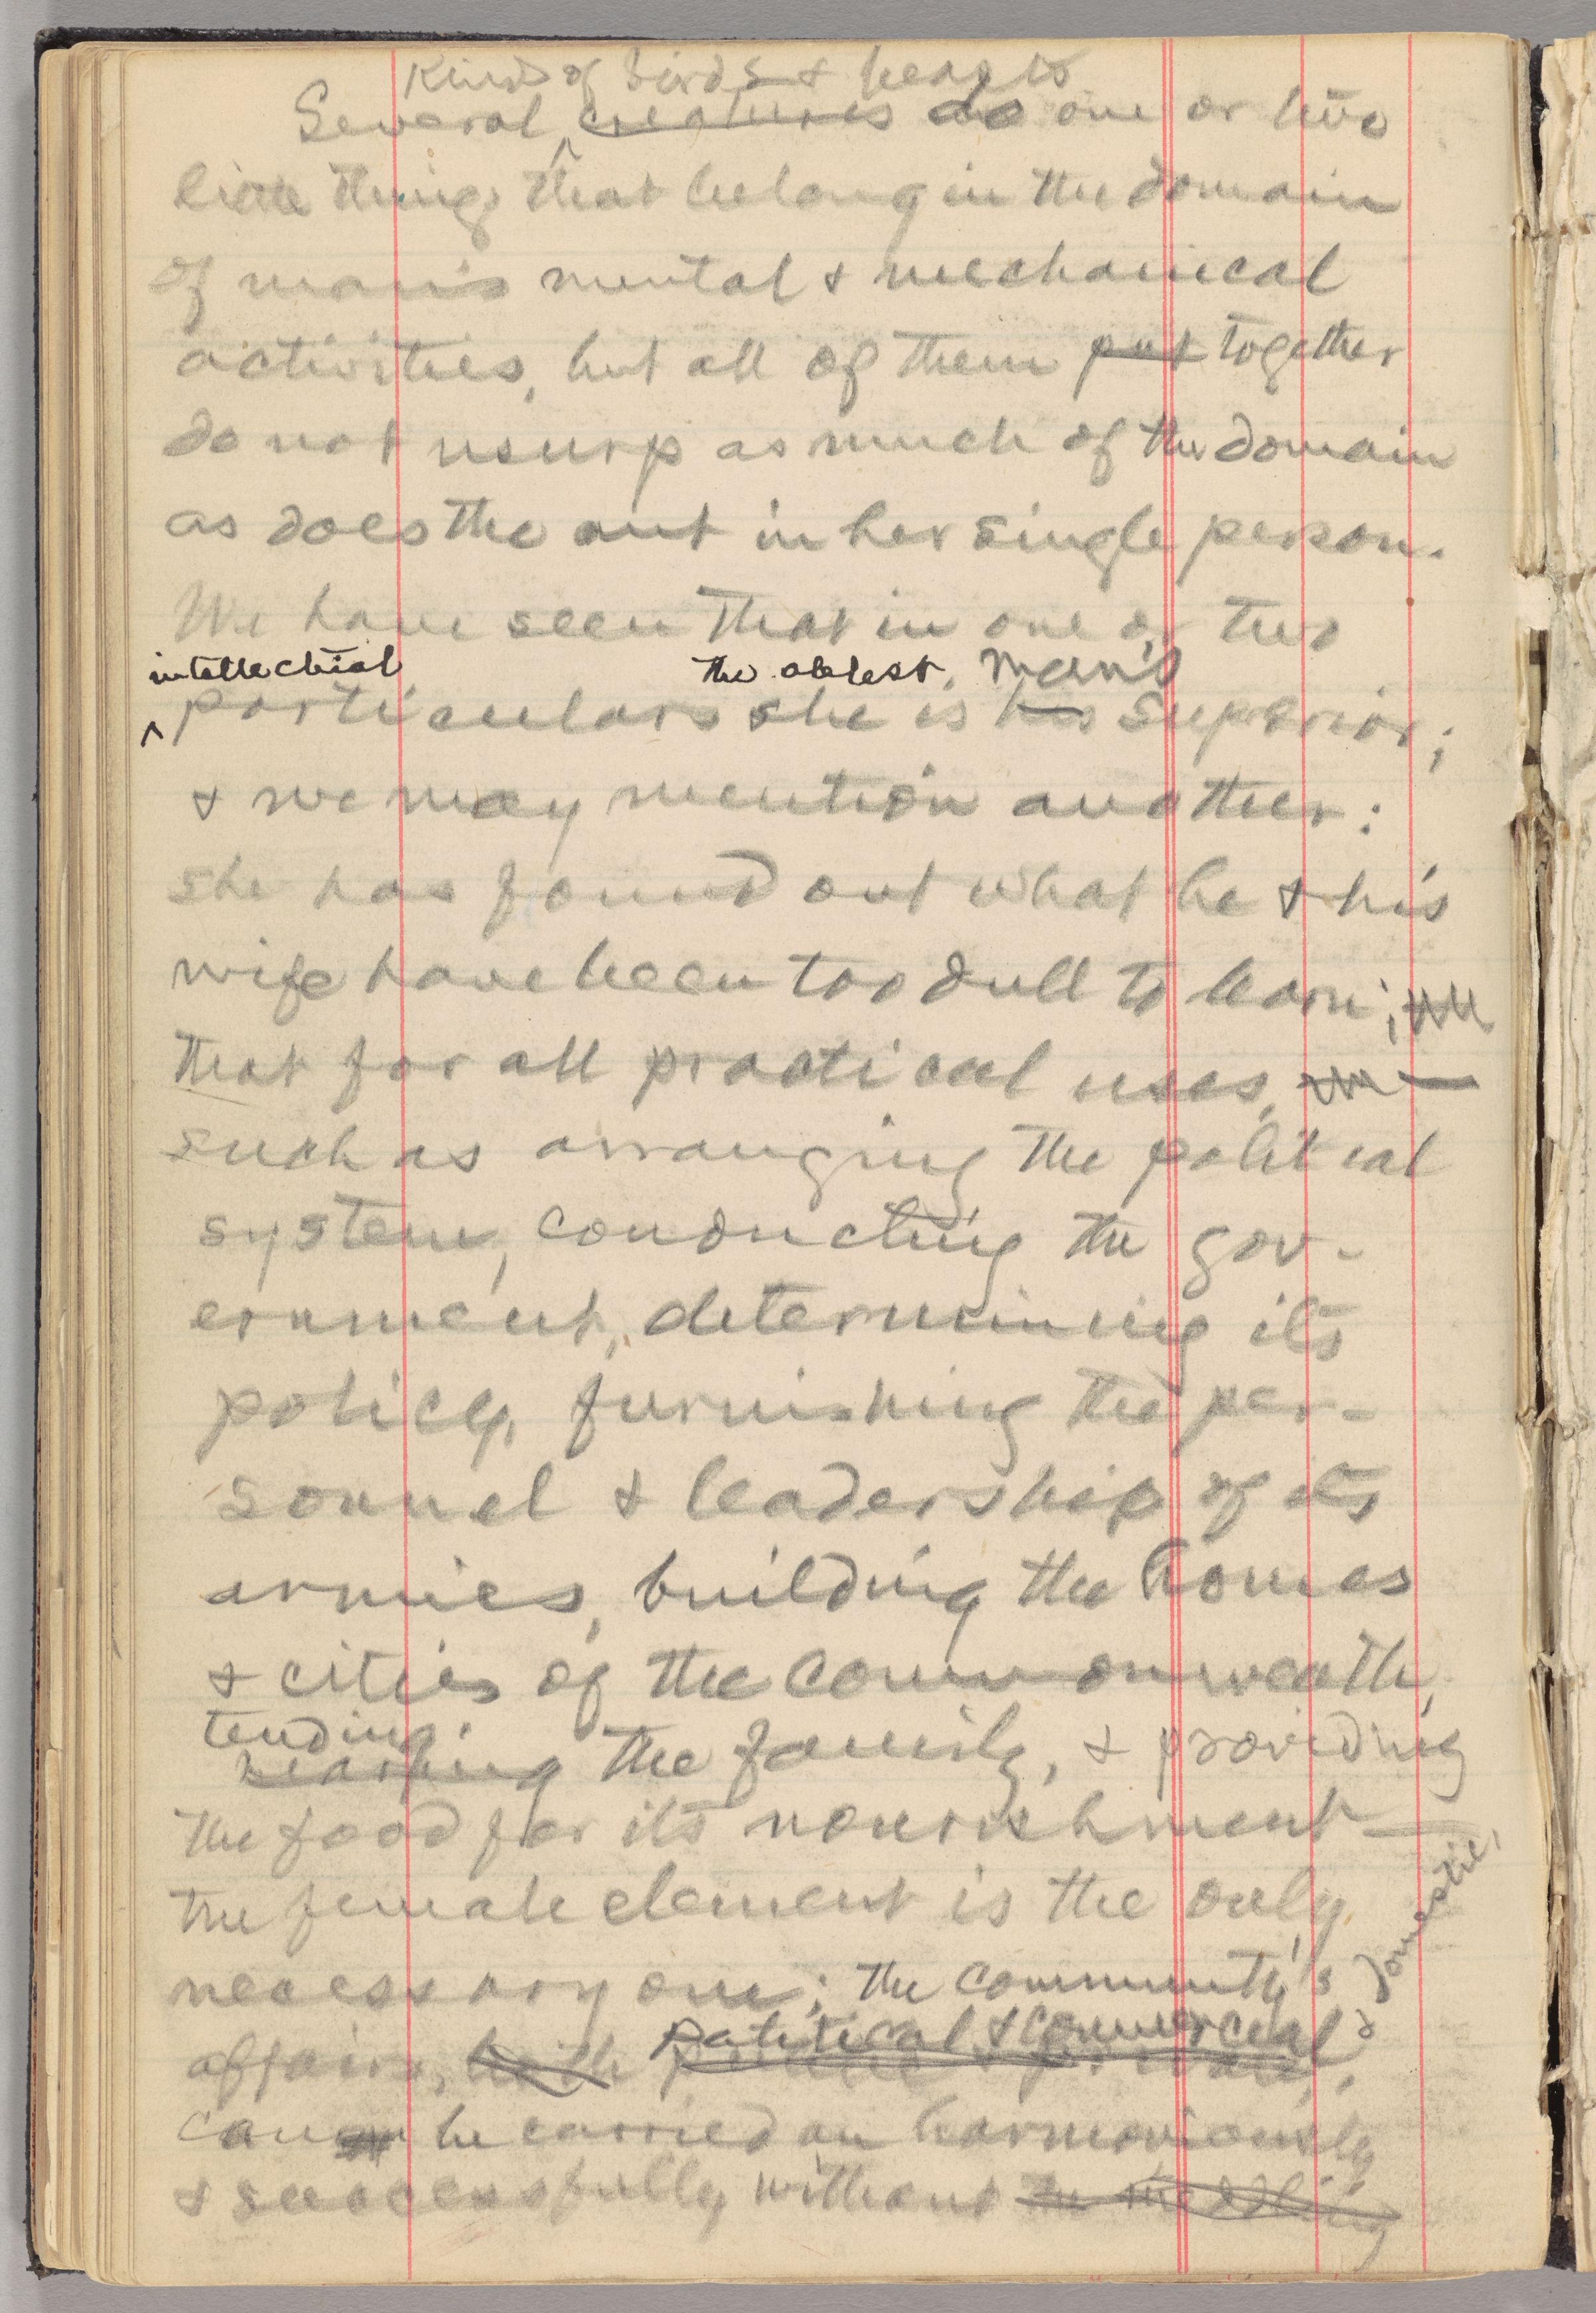 Kinds of birds & beasts
Several creatures do one or two
little things that belong in the domain
of man's mental & mechanical
activities, but all of them put together
do not usurp as much of the domain
as does the ant in her single person.
We have seen that in one or two
intellectual the ablest man's
particulars she is his superior;
& we may mention another:
she has found out what he & his
wife have been too dull to learn;
that for all practical uses, —
such as arranging the political
system, conducting the gov-
ernment, determining its
policy, furnishing the per-
sonnel & leadership of its
armies, building the homes
& cities of the commonwealth,
tending
the family, & providing
the food for its nourishment —
the female element is the only
necessary one; the community's
political & commercial & domestic,
affairs, both
can be carried on harmoniously
& successfully without the meddling